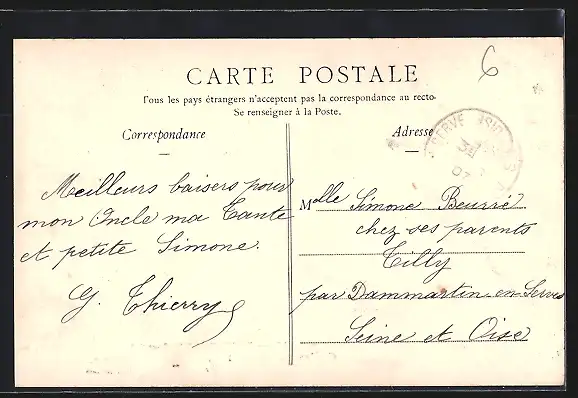 6
CARTE POSTALE
Tous les pays étrangers n'acceptent pas la correspondance au recto.
Se renseigner à la Poste.
Correspondance
Adresse
SERVE
07
Meilleurs baisers pour
mon Oncle ma Tante
et petite Simone.
G. Thierry
Mlle Simone Beurrié
chez ses parents
Tilly
par Dammartin-en-Serve
Seine et Oise